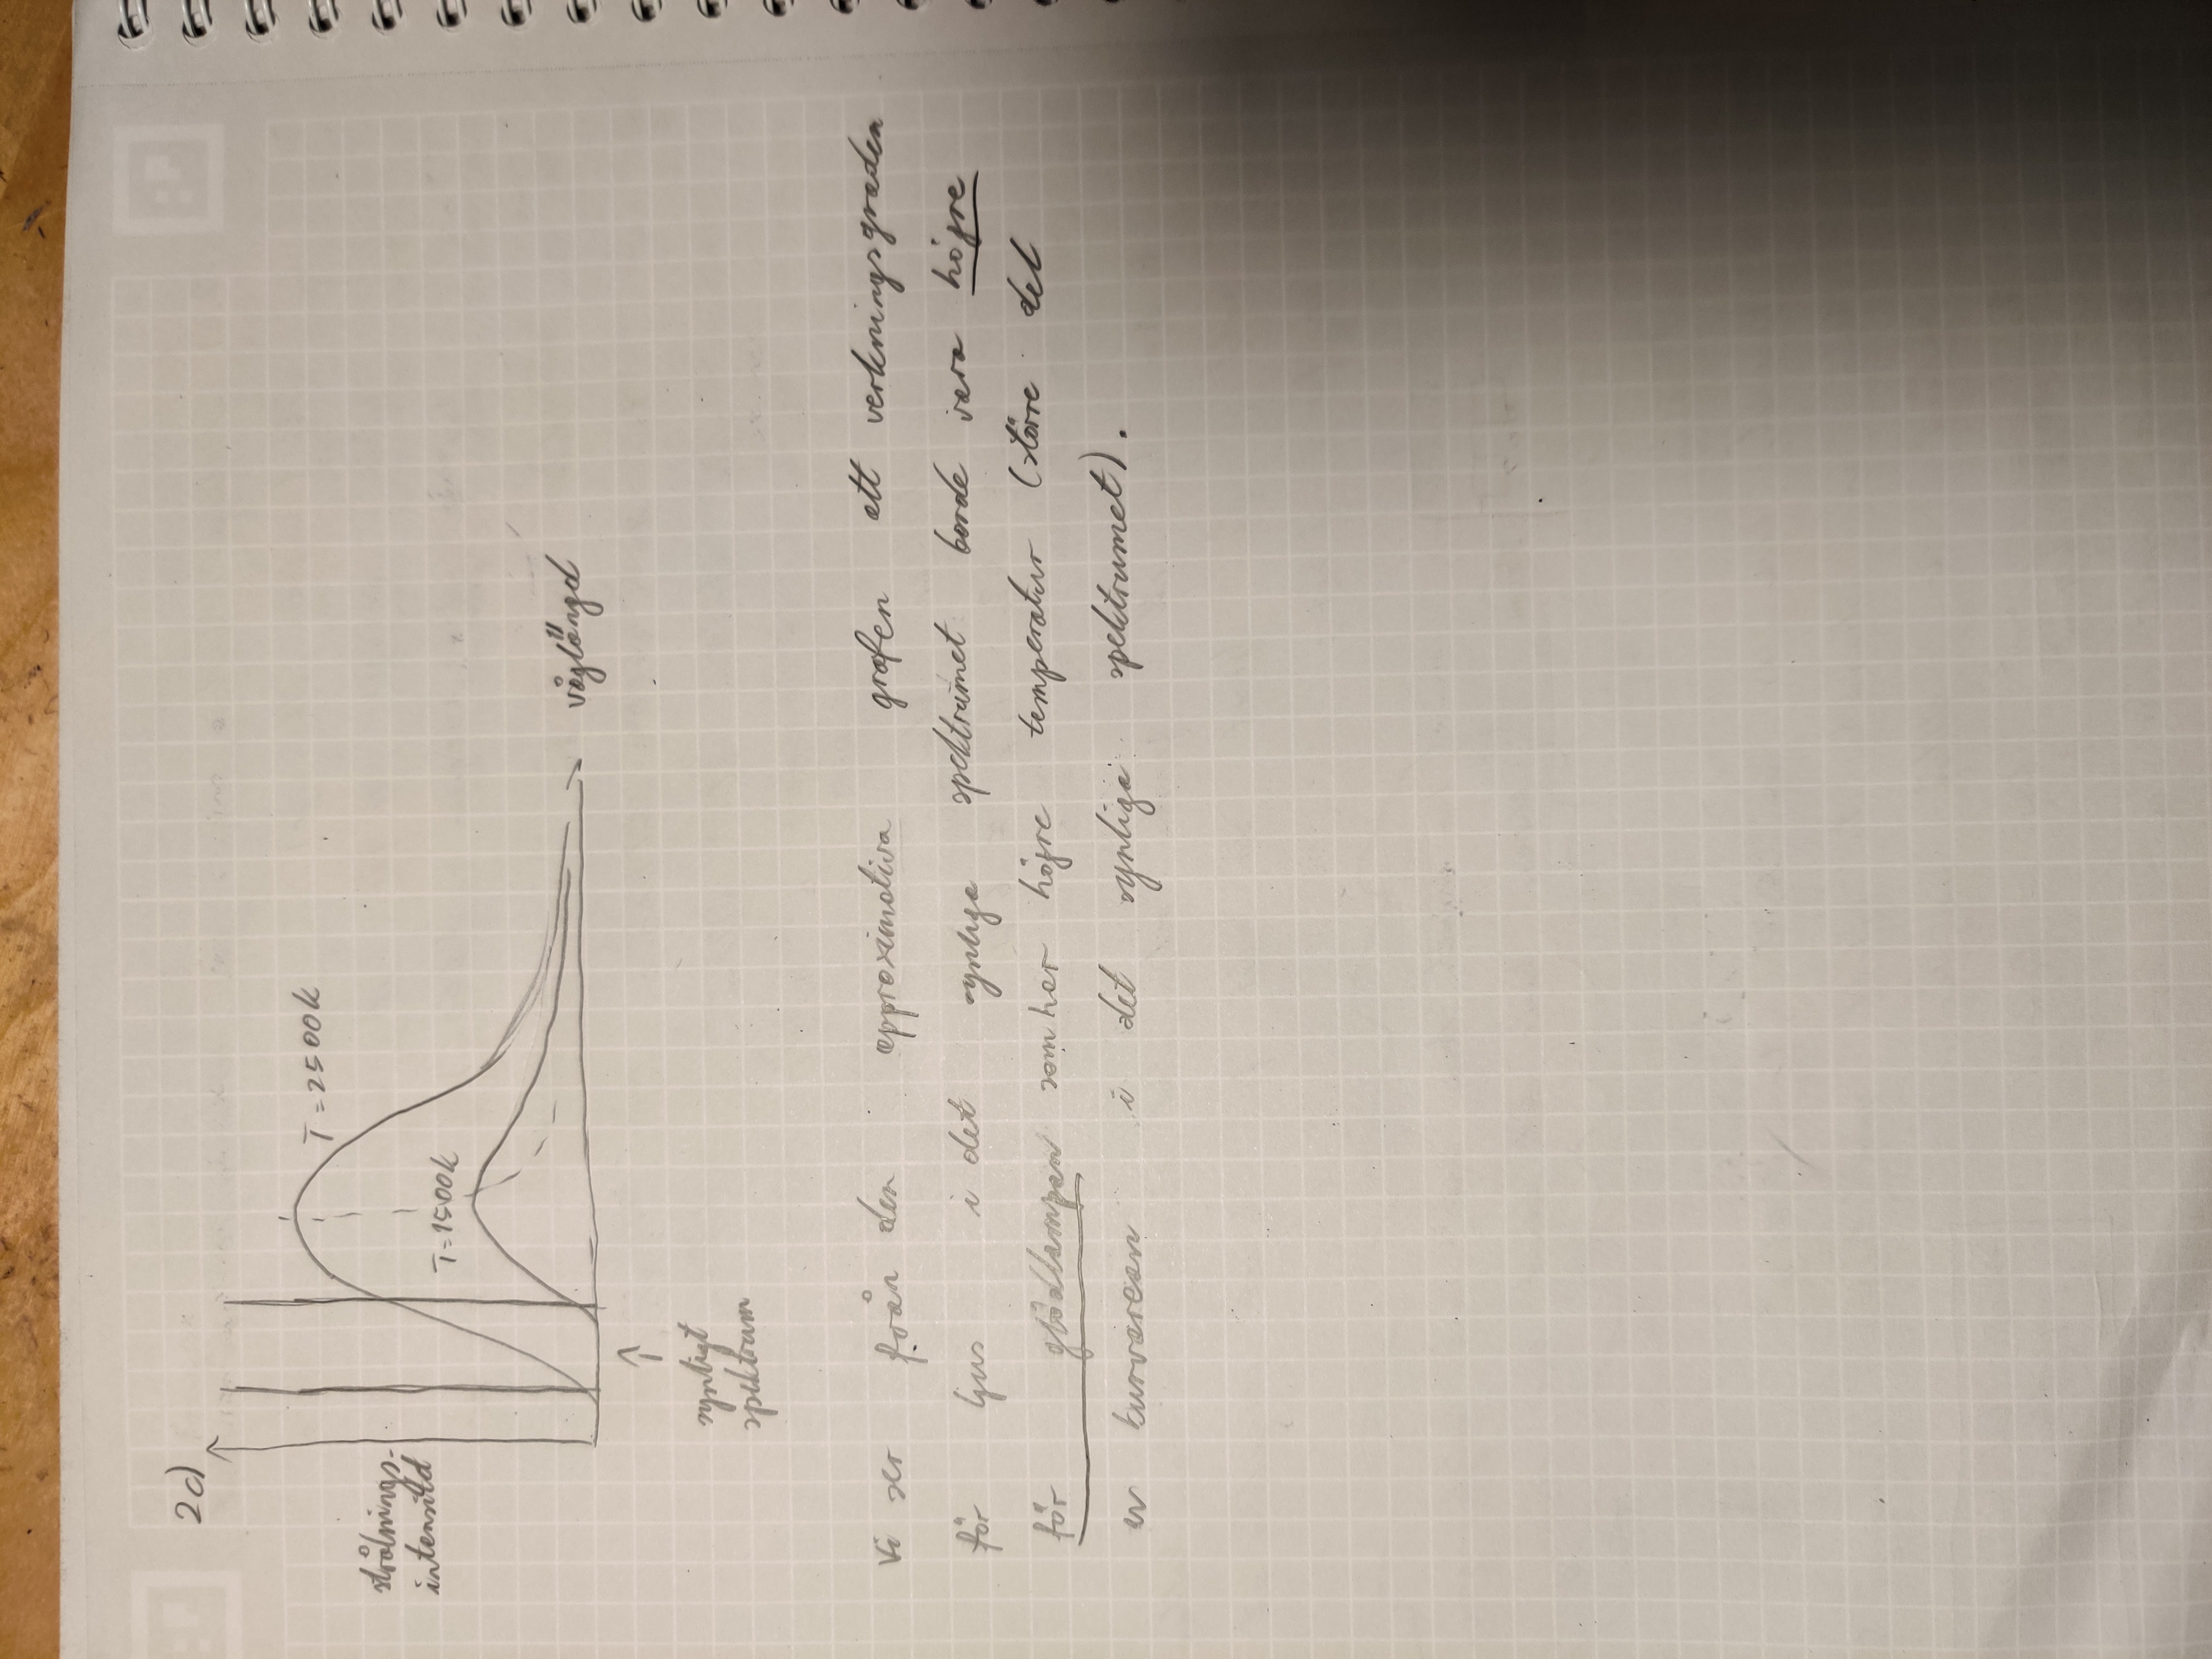 2d)
strålnings-
intensitet
T=2500K
T=1500K
våglängd
synligt
spektrum
Vi ser från den approximativa grafen att verkningsgraden
för ljus i det synliga spektrumet borde vara högre
för glödlampan som har högre temperatur (större del
av kurvarean i det synliga spektrumet).